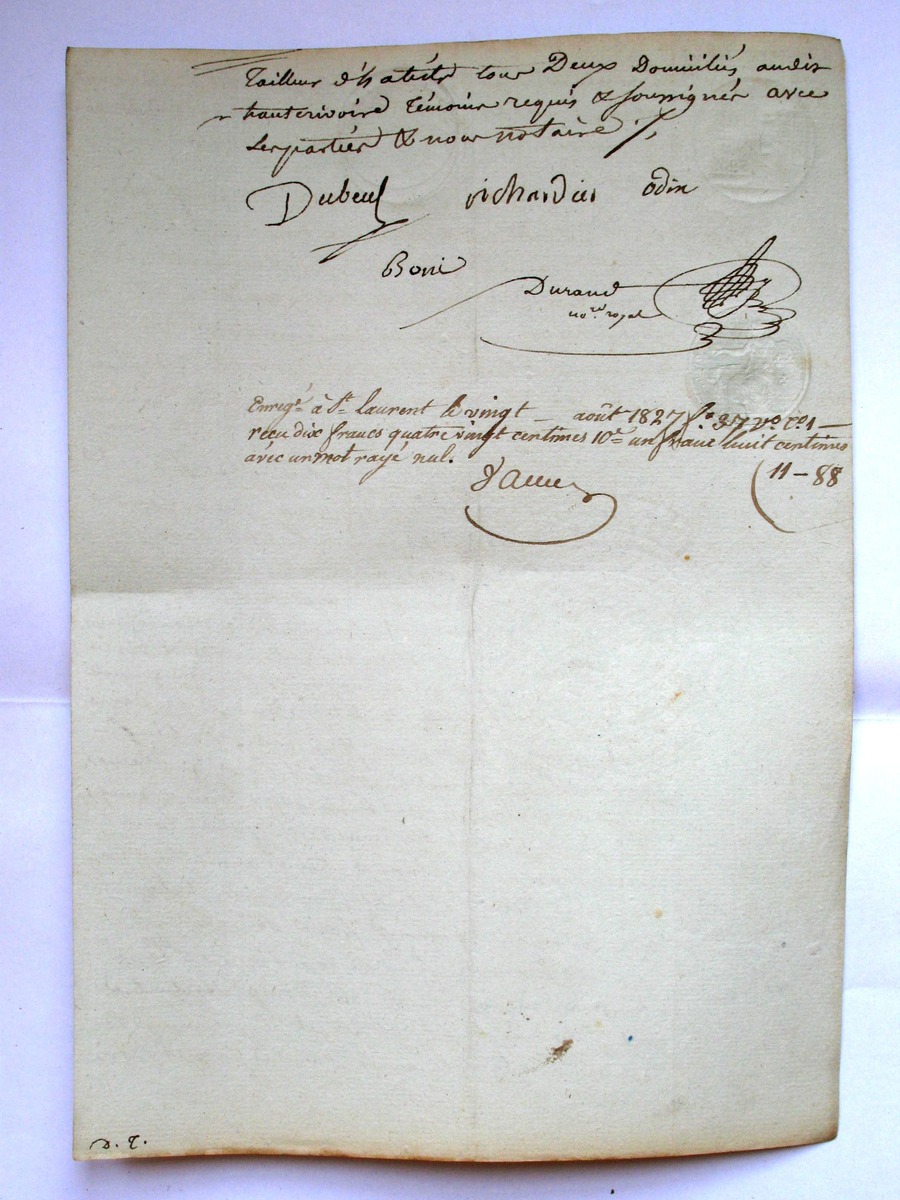 Tailleur d'habits tous Deux Domiciliés audit
hauterivoire Témoins requis & soussignés avec
les parties & nous notaire %
Dubeuf richardier odin
Boni
Durand
no.re royal
Enregé à St Laurent le vingt août 1827 fo. 37 vo Co 1
reçu dix francs quatre vingt centimes 10e un franc huit centimes
avec un mot rayé nul.
11-88
D. T.